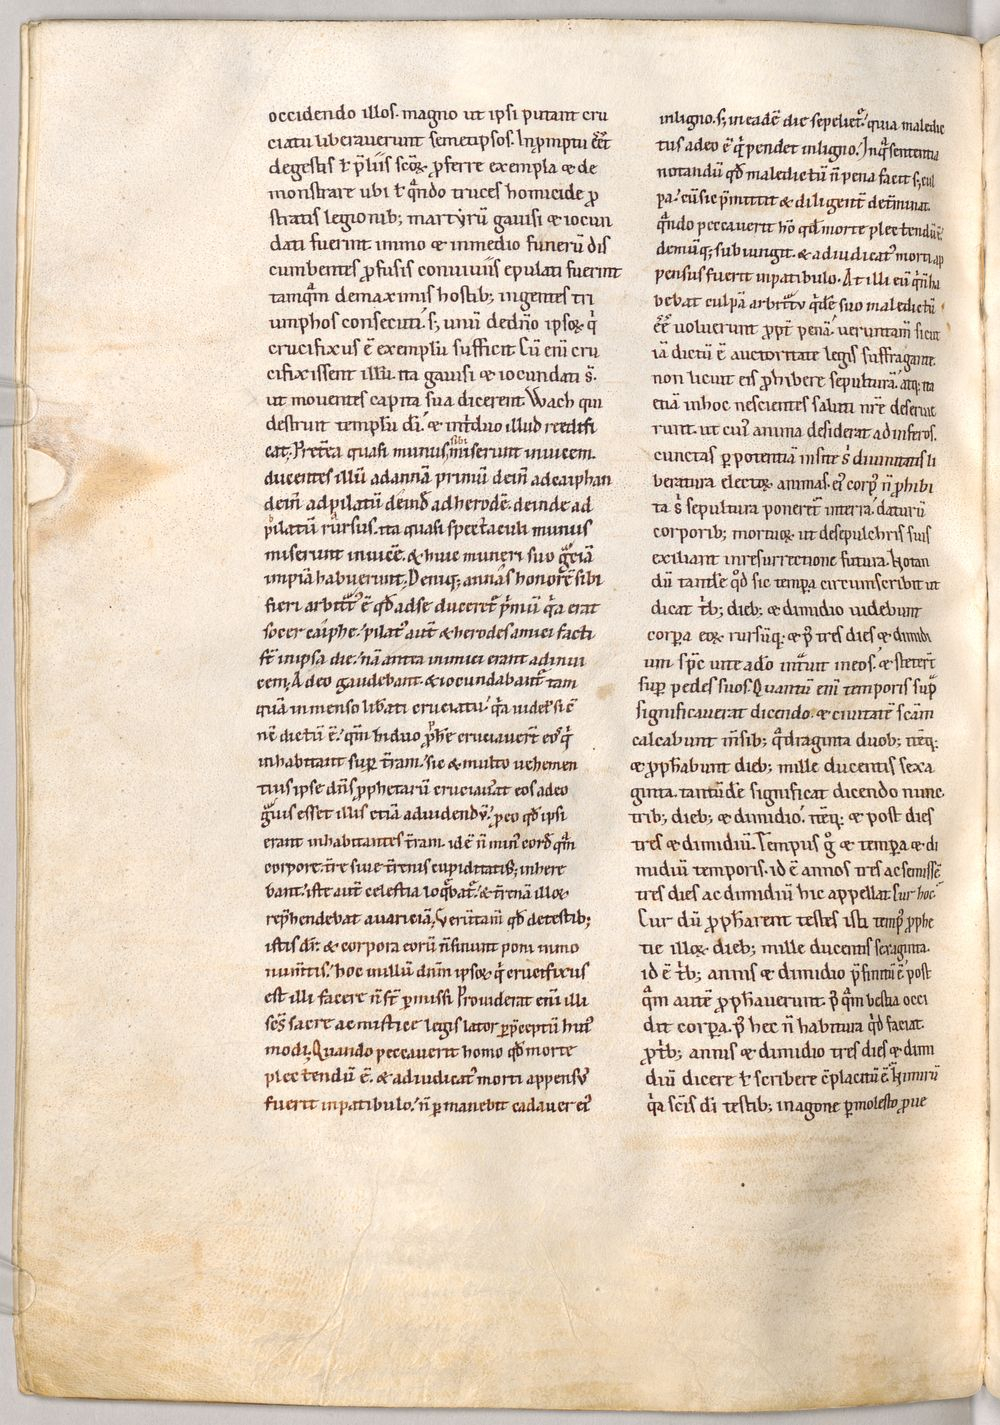 occidendo illos. magno ut ipsi putant cru
ciatu liberauerunt semetipsos. In p̄mptu ēēt
de gestis ł p̄liis scōꝝ p̄ferre exempla & de
monstrare ubi ł qn̄do truces homicide ꝓ
stratis legionib; martyrū gauisi & iocun
dati fuerint immo & in medio funerū dis
cumbentes ꝓfusis conuiuiis epulati fuerint
tamqm̄ de maximis hostib; ingentes tri
umphos consecuti. s; unū de dn̄o ipsoꝝ q̄
crucifixus ē exemplū sufficit. Cū eni cru
cifixissent illū. ita gauisi & iocundati s̄.
ut mouentes capita sua dicerent. Wach qui
destruit templū dī. & in t̄duo illud reedifi
cat. Pret̄ea quasi munus sibi miserunt inuicem.
ducentes illū ad annā primū dein̄ ad caiphan
dein̄ ad pilatū deind̄ ad herodē. deinde ad
pilatū rursus. ita quasi spectaculi munus
miserunt inuicē. & huic muneri suo grātiā
impiā habuerunt. Deniq; annas honorē sibi
fieri arbitrat᷒ ē qđ ad se ducer&᷒ p̄mū q̄a erat
socer caiphe. pilat᷒ aut̄ & herodes amici facti
st̄ in ipsa die. nā antea inimici erant ad inui
cem. Adeo gaudebant. & iocundabant᷒ tam
quā immenso lib̄ati cruciatu. q̄a uidel; si ē
nē dictū ē. qm̄ hi duo ꝓph̄e cruciauert̄ eos q̄
inhabitant sup̄ t̄ram. sic & multo uehemen
tius ipse dn̄s ꝓphetarū cruciauit eos adeo
ḡuis esset illis etiā ad uidendū. ꝓeo qđ ipsi
erant inhabitantes t̄ram. id ē n̄ min᷒ cord̄ qm̄
corpore. t̄re siue t̄renis cupiditatib; inhere
bant. iste aut̄ celestia loq̄bat᷒. & t̄renā illoꝝ
rep̄hendebat auariciā. Verūtam̄ qđ de testib;
istis dr̄. & corpora eorū n̄ sinunt poni in mo
num̄tis. hoc in illū dn̄m ipsoꝝ q̄ crucifixus
est illi facere n̄ st̄ p̄missi. Prouiderat eni illi
scs̄ sacre ac mistice legis lator p̄ p̄ceptū hui᷒
modi. Quando peccauerit homo qđ morte
plectendū ē. & adiudicat᷒ morti appensus
fuerit in patibulo. n̄ ꝑmanebit cadauer ei᷒
in ligno. s; in eadē die sepeliet᷒. quia maledic
tus a deo ē q̄ pendet in ligno. In q̄ sententia
notandū qđ maledictū n̄ pena facit s; cul
pa. cū sic p̄mittit & diligent̄ det̄minat.
qn̄do peccauerit hō qđ morte plectendū ē.
demūq; subiungit. & adiudicat᷒ morti ap
pensus fuerit in patibulo. At illi eū q̄ n̄ ha
bebat culpā arbitriū q̄dē suo maledictū
ēē uoluerunt ꝓpt̄ penā. ueruntam̄ sicut
iā dictū ē auctoritate legis suffragante.
non licuit eis ꝓhibere sepulturā. atq; ita
etiā in hoc nescientes saluti nr̄e deserui
runt. ut cui᷒ anima desiderat ad inferos.
cunctas ꝑ potentiā insite s̄ diuinitatis li
beratura electoꝝ animas. ei᷒ corp᷒ n̄ ꝓhibi
ta s̄ sepultura poneret᷒ in terra. daturū
corporib; mortuoꝝ ut de sepulchris suis
exiliant in resurrectione futura. Notan
dū tandē qđ sic tempora circumscribit ut
dicat t̄b; dieb; & dimidio uidebunt
corpora eoꝝ. rursūq; & p̄ tres dies & dimidi
um. sp̄c uite a dō intrauit in eos. & stetert̄
sup̄ pedes suos. Quantū eni temporis sup̄
significauerat dicendo. & ciuitatē scām
calcabunt m̄sib; q̄draginta duob; itēq;
& ꝓph̄abunt dieb; mille ducentis sexa
ginta. tantūdē significat dicendo nunc.
trib; dieb; & dimidio. itēq; & post dies
tres & dimidiū. Tempus ḡ & tempora & di
midiū temporis. id ē annos tres ac semissē
tres dies ac dimidiū hic appellat. Cur hoc.
Cur dū ꝓph̄arent testes isti temp᷒ ꝓphe
tie illoꝝ dieb; mille ducentis sexaginta.
id ē t̄b; annis & dimidio p̄finitū ē post
qm̄ autē ꝓph̄auerunt. p̄ qm̄ bestia occi
dit corpora. p̄ hec n̄ habitura qđ faciat.
ꝓ t̄b; annis & dimidio tres dies & dimi
diū dicere ł scribere cplacitū ē. Nimirū
q̄a scīs dī testib; in agone ꝑmolesto ꝓ ue